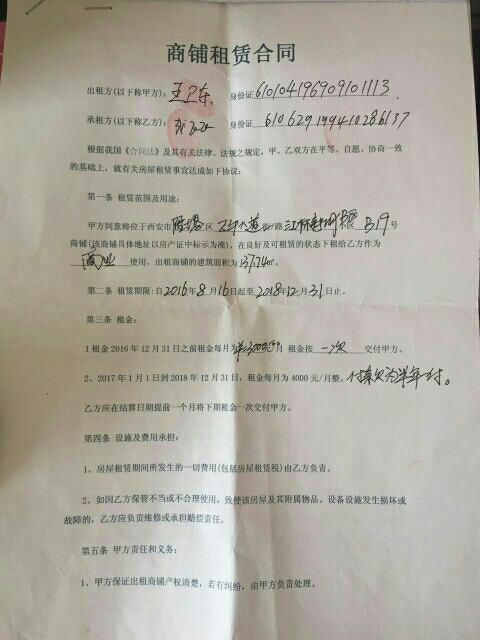 商铺租赁合同
出租方(以下称甲方): 王卫东. 身份证 610104196909101113
承租方(以下称乙方): 身份证
根据我国《合同法》及其有关法律、法规之规定，甲、乙双方在平等、自愿、协商一致
的基础上，就有关房屋租赁事宜达成如下协议:
第一条 租赁范围及用途:
甲方同意将位于西安市 雁塔 区 街/路 小区 B19 号
商铺(该商铺具体地址以房产证中标示为准)，在良好及可租赁的状态下租给乙方作为
商业 使用，出租商铺的建筑面积为 137.74㎡。
第二条 租赁期限:自2016年8月16日起至2018年12月31日止。
第三条 租金:
1 租金 2016 年 12 月 31 日之前租金每月为 元/月 租金按 一次 交付甲方。
2、2017 年 1 月 1 日到 2018 年 12 月 31 日，租金每月为 4000 元/月整。付款为半年一付。
乙方应在结算日期提前一个月将下期租金一次交付甲方。
第四条 设施及费用承担:
1、房屋租赁期间所发生的一切费用(包括房屋租赁税)由乙方负责。
2、如因乙方保管不当或不合理使用，致使该房屋及其附属物品、设备设施发生损坏或
故障的，乙方应负责维修或承担赔偿责任。
第五条 甲方责任和义务:
1、甲方保证出租商铺产权清楚，若有纠纷，由甲方负责处理。